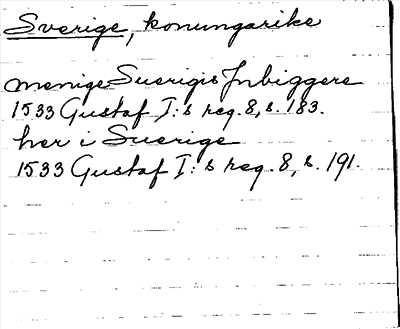 Sverige, konungarike
menige Suerigis Jnbiggere
1533 Gustaf I:s reg. 8, s. 183.
her i Suerige
1533 Gustaf I:s reg. 8, s. 191.